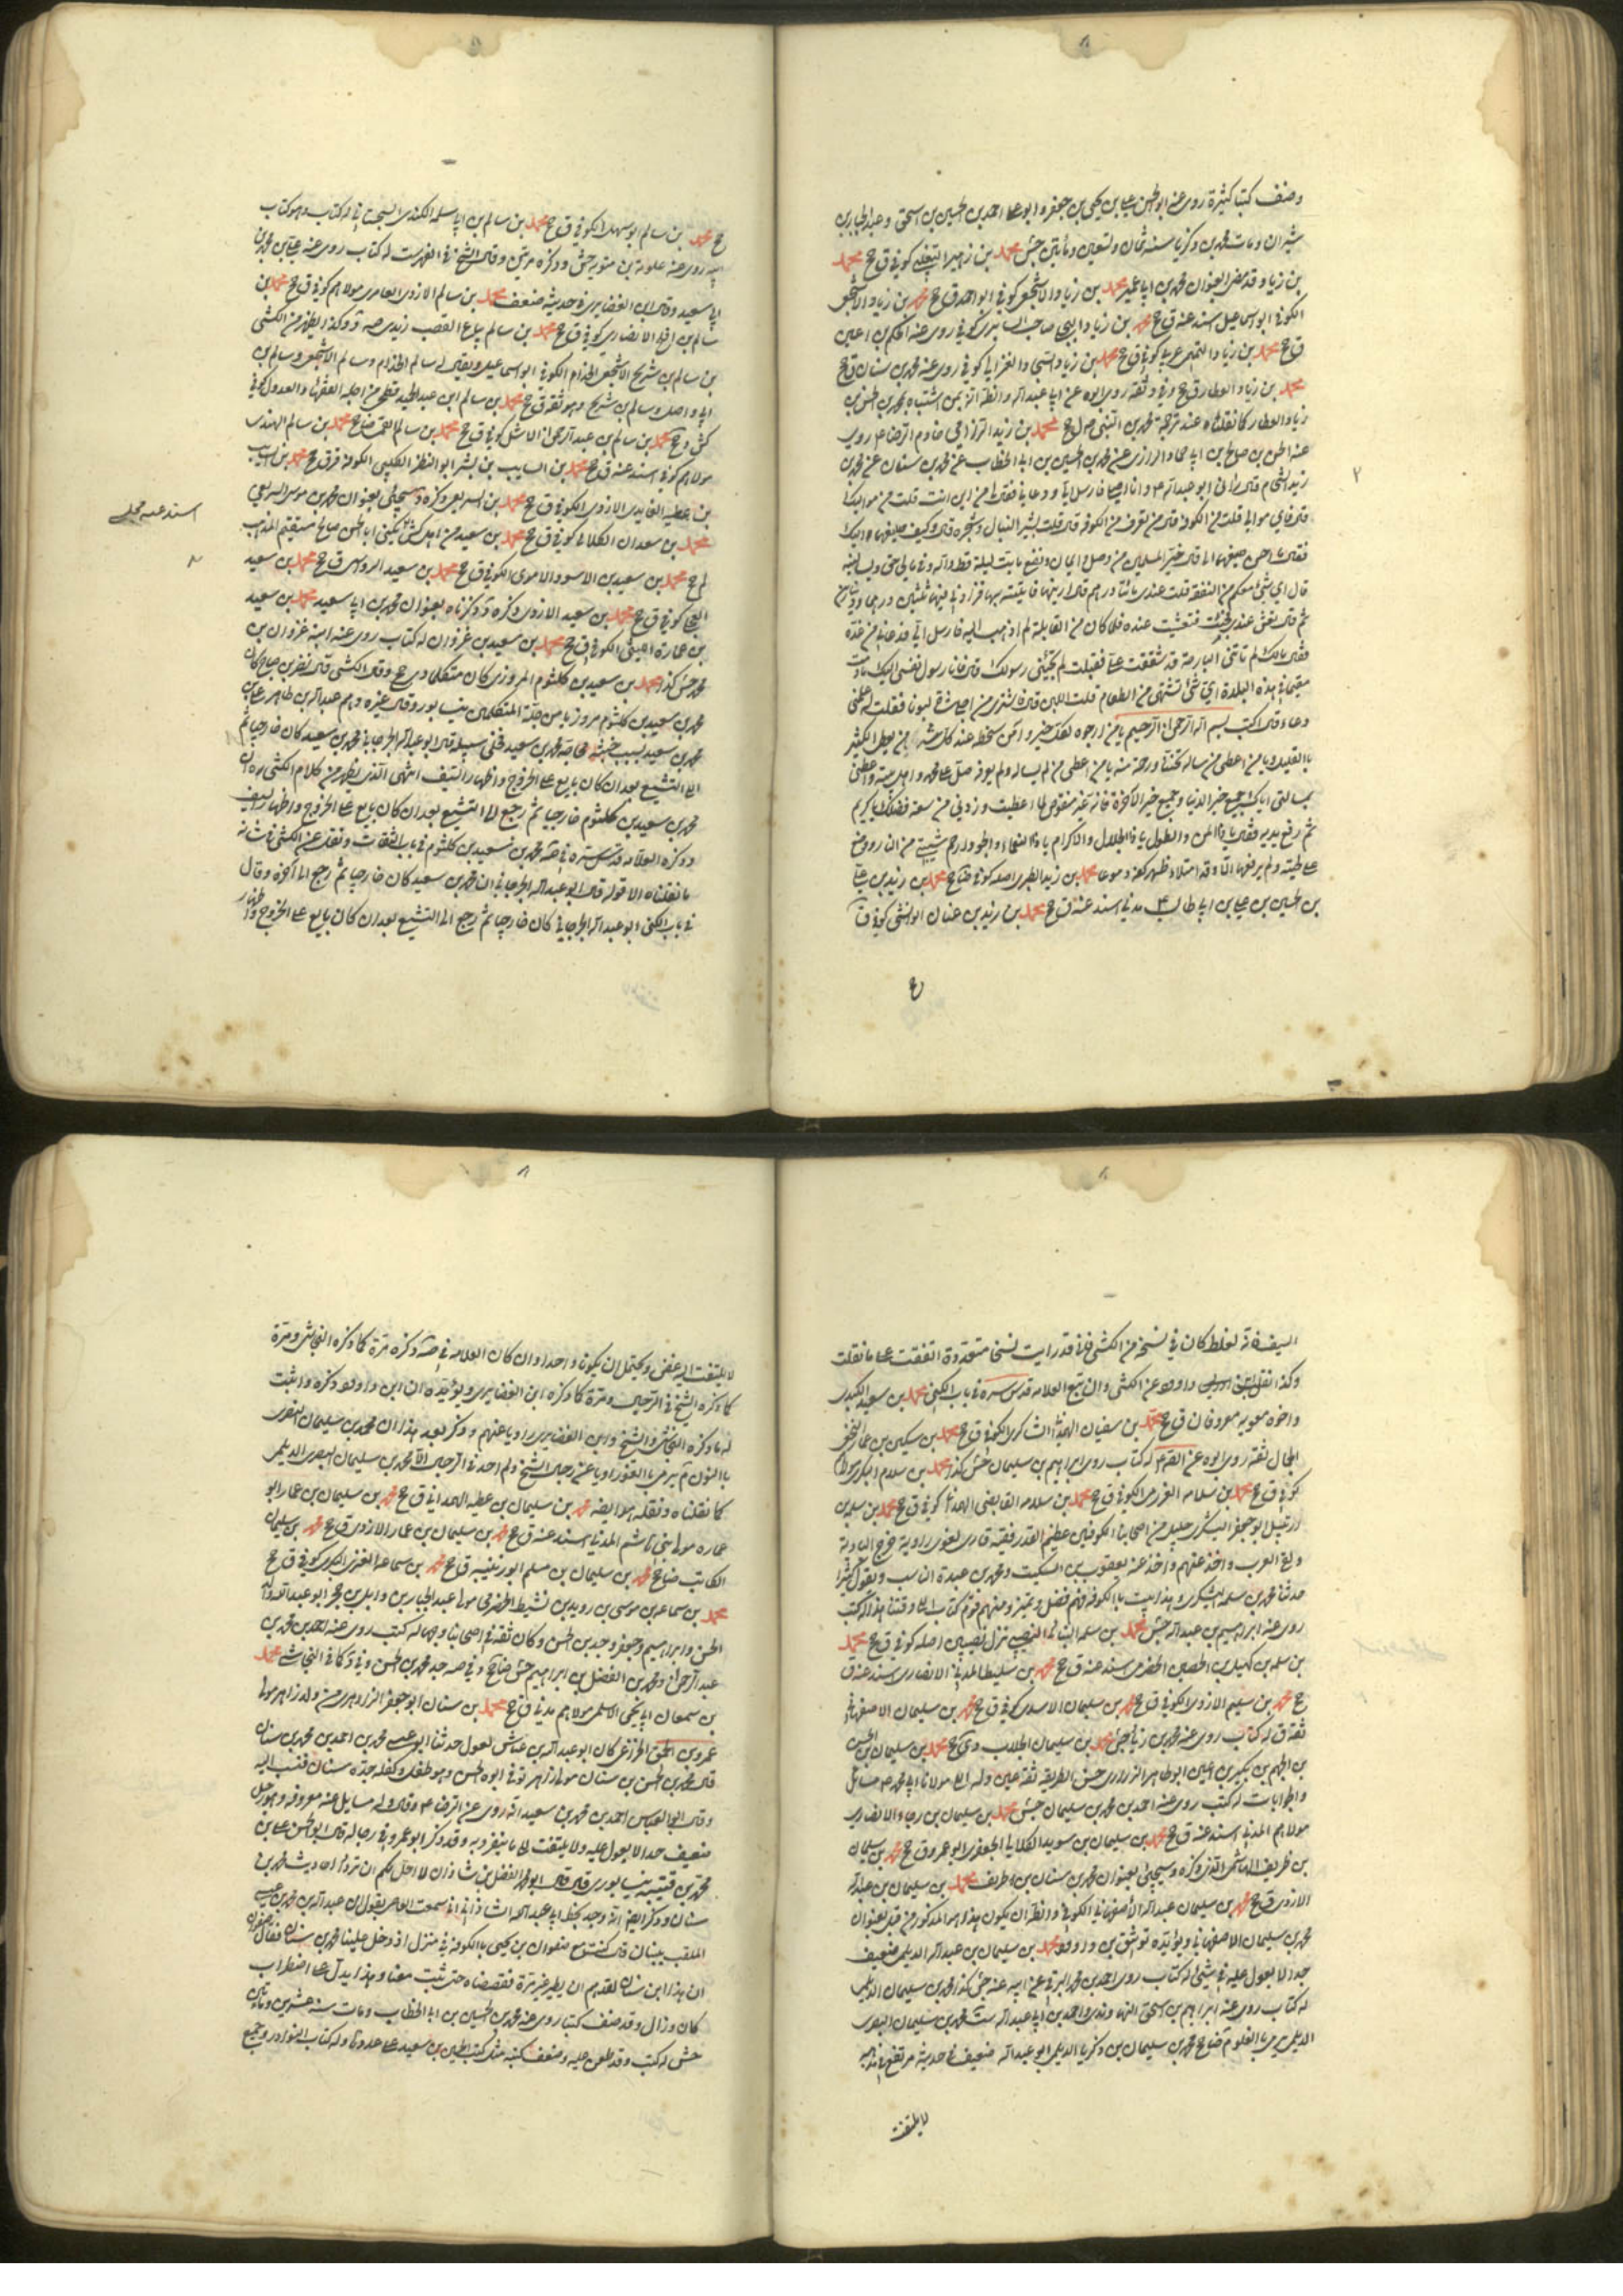 وصنف كتبا كثيرة روى عنه ابو الحسن علي بن يحيى بن جعفر و ابو علي احمد بن الحسين بن اسحق وعبد الجبار بن
شيران ومات محمد بن زكريا سنة ثمان وتسعين ومأتين جش محمد بن زهير التغلبي كوفي ق جخ محمد
بن زياد وقد مضى بعنوان محمد بن ابي عمير محمد بن زياد الاشجعي كوفي ابو احمد ق جخ محمد بن زياد الاشجعي
الكوفي ابو اسماعيل اسند عنه ق جخ محمد بن زياد البجلي صاحب السابري كوفي روى عنه الحكم بن اعين
ق جخ محمد بن زياد التميمي عربي كوفي ق جخ محمد بن زياد السجستاني روى عنه محمد بن سنان ق جخ
محمد بن زياد العطار ق جخ وثقة روى ابوه عن ابي عبد الله
زياد العطار كما نقلناه عند ترجمة محمد بن الحسن محمد بن زيد الرزامي خادم الرضا ع روى
عنه الحسن بن صالح بن ابي حماد الرازي عن محمد بن الحسين بن ابي الخطاب عن محمد بن سنان عن محمد بن
زيد الشحام قال رآني ابو عبد الله ع وانا اصلي فارسل الي ودعاني فقال لي من اين انت قلت من مواليك
قال فاي موالي قلت من الكوفة قال من تعرف من الكوفة قال قلت بشير النبال وشجرة قال وكيف صنيعهما اليك
فقال ما احسن صنيعهما الي قال خير المسلمين من وصل واعان ونفع ما بت ليلة قط والله وفي مالي حق يسألنيه
قال اي شئ معكم من النفقة قلت عندي مائتا درهم قال ارنيها فاتيته بها فزادني فيها ثلثين درهما ودينارين
ثم قال تعش عندي فجئت فتعشيت عنده فلما كان من القابلة لم اذهب اليه فارسل الي فدعاني من غده
فقال مالك لم تأتني البارحة قد شفقت علي فقلت لم يجئني رسولك قال فانا رسول نفسي اليك ما دمت
مقيما في هذه البلدة اي شئ تشتهي من الطعام قلت اللبن فاشترى من اجلي شاة لبونا فقلت له علمني
دعاء قال اكتب بسم الله الرحمن الرحيم يا من ارجوه لكل خير وآمن سخطه عند كل عثرة يا من يعطي الكثير
بالقليل ويا من اعطى من سأله تحننا ورحمة منه يا من اعطى من لم يسأله ولم يعرفه صل على محمد واهل بيته واعطني
بمسألتي اياك جميع خير الدنيا وجميع خير الآخرة فانه غير منقوص لما اعطيت وزدني من سعة فضلك يا كريم
ثم رفع يديه فقال يا ذا المن والطول يا ذا الجلال والاكرام يا ذا النعماء والجود ارحم شيبتي من النار ووضع
على لحيته ولم يرفعها الا وقد امتلأ ظهر كفه دموعا محمد بن زيد الطبري اصله كوفي ضا جخ محمد بن زيد بن علي
بن الحسين بن علي بن ابي طالب ع مدني اسند عنه ق جخ محمد بن زيد بن كوفي ق
جخ
جخ محمد بن سالم ابو سهل الكوفي ق جخ محمد بن سالم بن ابي سلمة الكندي السجستاني له كتاب وهو كتاب
ابيه روى عنه علي بن محمد بن متويه جش وذكره مرتين وقال الشيخ في الفهرست له كتاب روى عنه علي بن محمد بن
ابي سعيد وقال ابن الغضايري في حديثه ضعف محمد بن سالم الازدي العامري مولاهم كوفي ق جخ محمد بن
سالم بن الانصاري كوفي ق جخ محمد بن سالم بياع القصب زيدي صه وكذا يظهر من الكشي
بن سالم بن شريح الاشجعي الحذاء الكوفي ابو اسماعيل ويقال له سالم الحذاء وسالم الاشجعي وسالم بن
ابي واصل وسالم بن شريح وهو ثقة ق جخ محمد بن سالم ابن عبد الحميد فطحي من اجلة الفقهاء والعدول كوفي
كش جخ محمد بن سالم بن عبد الرحمن الاشل كوفي ق جخ محمد بن سالم جخ محمد بن سالم الهندي
مولاهم كوفي اسند عنه ق جخ محمد بن السايب بن بشر ابو النظر الكلبي الكوفي قر ق جخ محمد بن السايب
بن عطية العايدي الازدي الكوفي ق جخ محمد بن السريع وسيجئ بعنوان محمد بن موسى السريعي
محمد بن سعدان الكلابي كوفي ق جخ محمد بن سعيد من اهل كش يكنى ابا الحسن صالح مستقيم المذهب
لم جخ محمد بن سعيد بن الاسود الاموي الكوفي ق جخ محمد بن سعيد ق جخ محمد بن سعيد
البجلي كوفي ق جخ محمد بن سعيد الازدي وذكرناه بعنوان محمد بن ابي سعيد محمد بن سعيد
بن عمارة الكوفي ق جخ محمد بن سعيد بن غزوان له كتاب روى عنه ابنه غزوان بن
محمد جش كذا محمد بن سعيد بن كلثوم المروزي كان متكلما دي جخ وقال الكشي قال نصر بن صباح كان
محمد بن سعيد بن كلثوم مروزيا من جلة المتكلمين بنيسابور وقال غيره وهجم عبد الله بن طاهر على
محمد بن سعيد بسبب خبثه فحاجه محمد بن سعيد فخلى سبيله قال ابو عبد الله الجرجاني محمد بن سعيد كان خارجيا ثم
الى التشيع بعد ان كان بايع على الخروج واظهار السيف انتهى الذي يظهر من كلام الكشي ره ان
محمد بن سعيد بن كلثوم خارجيا ثم رجع الى التشيع بعد ان كان بايع على الخروج واظهار السيف
وذكره العلامة قدس سره في صه محمد بن سعيد بن كلثوم في باب الثقات ونقل عن الكشي في شانه
ما نقلناه الا قوله قال ابو عبد الله الجرجاني ان محمد بن سعيد كان خارجيا ثم رجع الى آخره وقال
في باب الكنى ابو عبد الله الجرجاني كان خارجيا ثم رجع الى التشيع بعد ان كان بايع على الخروج واظهار
اسند عنه
السيف فانه لغلط كان في نسخ من الكشي فاني قد رايت نسخا متعددة اتفقت على ما نقلت
وكذا نقل داود عن الكشي وان تبع العلامة قدس سره في باب الكنى محمد بن سعيد الكندي
واخوه معوية معروفان ق جخ محمد بن سفيان الكوفي ق جخ محمد بن سكين بن عمار النخعي
الجمال ثقة روى ابوه عن الصادق ع له كتاب روى ابراهيم بن سليمان جش كذا محمد بن سلام البكري مولاهم
كوفي ق جخ محمد بن سلامة الكوفي ق جخ محمد بن سلامة القابضي الهمداني كوفي ق جخ محمد بن سلمة بن
ارتبيل ابو جعفر اليشكري جليل من اصحابنا الكوفيين عظيم القدر فقيه قاري لغوي راوية خرج البادية
ولقي العرب واخذ عنهم واخذ عنه يعقوب بن السكيت ومحمد بن عبدة الناسب ويقول كثيرا
حدثنا محمد بن سلمة اليشكري وهذا بيت بالكوفة فيهم فضل وتميز ومنهم قوم كتاب الى وقتنا هذا له كتب
روى عنه ابراهيم بن عبد الله جش محمد بن سلمة البناني النصيبي نزل نصيبين اصله كوفي ق جخ محمد
بن سلمة بن كهيل بن الحصين الحضرمي اسند عنه ق جخ محمد بن سليط المدني الانصاري اسند عنه ق
جخ محمد بن سليم الازدي الكوفي ق جخ محمد بن سليمان الاسدي كوفي ق جخ محمد بن سليمان الاصفهاني
ثقة ق له كتاب روى عنه محمد بن زياد جش محمد بن سليمان الجلاب جخ محمد بن سليمان بن الحسن
بن الجهم بن بكير بن اعين ابو طاهر الزراري حسن الطريقة ثقة عين وله الى مولانا ابي محمد ع مسائل
والجوابات له كتب روى عنه احمد بن محمد بن سليمان جش محمد بن سليمان بن رجاء الانصاري
مولاهم المدني اسند عنه ق جخ محمد بن سليمان بن سويد الكلابي الجعفري ابو عمرو ق جخ محمد بن سليمان
بن ظريف الهاشمي وسيجئ بعنوان محمد بن سنان بن طريف محمد بن سليمان بن عبد الله
الازدي ق جخ محمد بن سليمان عبد الله الاصفهاني الكوفي والظاهر ان يكون هذا هو المذكور من قبل بعنوان
محمد بن سليمان الاصفهاني ويؤيده توثيق بن داود محمد بن سليمان بن عبد الله الديلمي ضعيف
جدا لا يعول عليه في شئ له كتاب روى احمد بن محمد البرقي عن ابيه عنه جش كذا محمد بن سليمان الديلمي
له كتاب روى عنه ابراهيم بن اسحق النهاوندي واحمد بن ابي عبد الله ست محمد بن سليمان البصري
الديلمي يرمى بالغلو م ضا جخ محمد بن سليمان بن زكريا الديلمي ابو عبد الله ضعيف في حديثه مرتفع في مذهبه
لا يلتفت
لا يلتفت اليه غض ويحتمل ان يكونا واحدا وان كان العلامة في صه ذكره مرة كما ذكره النجاشي ومرة
كما ذكره الشيخ في الرجال ومرة كما ذكره ابن الغضايري ويؤيده ان ابن داود ذكره واثبت
له ما ذكره النجاشي والشيخ وابن الغضايري راويا عنهم وذكر بعد هذا ان محمد بن سليمان النصري
بالنون م يرمى بالغلو راويا عن رجال الشيخ ولم اجد في الرجال الا محمد بن سليمان البصري الديلمي
كما نقلناه ونقله هو ايضا محمد بن سليمان بن عطية الهمداني ق جخ محمد بن سليمان بن عمار ابو
عمارة مولى بني هاشم المدني اسند عنه ق جخ محمد بن سليمان بن عمار الازدي ق جخ محمد بن سليمان
الكاتب ضا جخ محمد بن سليمان بن مسلم ابو زينبة ق جخ محمد بن سماعة العنزي البكري كوفي ق جخ
محمد بن سماعة بن موسى بن رويد بن نشيط الحضرمي مولى عبد الجبار بن وايل بن حجر ابو عبد الله والد
الحسن وابراهيم وجعفر وجد بن الحسن وكان ثقة في اصحابنا وجها له كتب روى عنه احمد بن محمد بن
عبد الرحمن ومحمد بن المفضل بن ابراهيم جش ضا جخ وفي صه جد محمد بن الحسن كما في النجاشي محمد
بن سمعان ابي يحيى الاسلمي مولاهم مدني ق جخ محمد بن سنان ابو جعفر الزاهري من ولد زاهر مولى
عمرو بن الحمق الخزاعي كان ابو عبد الله بن عياش يقول حدثنا ابو عيسى محمد بن احمد بن محمد بن سنان
قال هو محمد بن الحسن بن سنان مولى زاهر توفي ابوه الحسن وهو طفل وكفله جده سنان فنسب اليه
وقال ابو العباس احمد بن محمد بن سعيد انه روى عن الرضا ع وقال وله مسايل عنه معروفة وهو رجل
ضعيف جدا لا يعول عليه ولا يلتفت الى ما ينفرد به وقد ذكر ابو عمرو في رجاله قال ابو الحسن علي بن
محمد بن قتيبة نيسابوري قال قال ابو محمد الفضل بن شاذان لا احل لكم ان ترووا احاديث محمد بن
سنان وذكر ايضا انه وجد بخط ابي عبد الله الشاذاني اني سمعت العاصمي يقول ان عبد الله بن محمد بن عيسى
الملقب ببنان قال كنت مع صفوان بن يحيى بالكوفة في منزل اذ دخل علينا محمد بن سنان فقال صفوان
ان هذا ابن سنان لقد هم ان يطير غير مرة فقصصناه حتى ثبت معنا وهذا يدل على اضطراب
كان وزال وقد صنف كتبا روى عنه محمد بن الحسين بن ابي الخطاب ومات سنة عشرين ومأتين
جش له كتب وقد طعن عليه وضعف كتبه مثل كتب الحسين بن سعيد على عددها وله كتاب النوادر وجميع